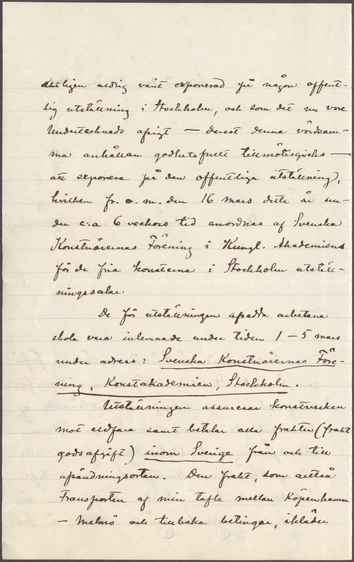 aldrig varit exponerad på någon offent-
lig utställning i Stockholm, och som det nu vore
Undertecknads afsigt — derest denna vördsam-
ma anhållan godhetsfullt tillmötesgicks —
att exponera på den offentliga utställning,
hvilken fr. o. m. den 16 mars detta år un-
der c:a 6 veckors tid anordnas af Svenska
Konstnärernas Förening i Kungl. Akademiens
för de fria konsterna i Stockholm utställ-
ningssalar.
De för utställningen afsedda arbetena
skola vara inlemnade under tiden 1–5 mars
under adress: Svenska Konstnärernas Före-
ning, Konstakademien, Stockholm.
Utställningen assurerar konstverken
mot eldfara samt betalar alla frakter (frakt
godsafgift) inom Sverige från och till
afsändningsorten. Den frakt, som
Transporten af min tafla mellan Köpenhamn
— Malmö och tillbaka betingar, ikläder